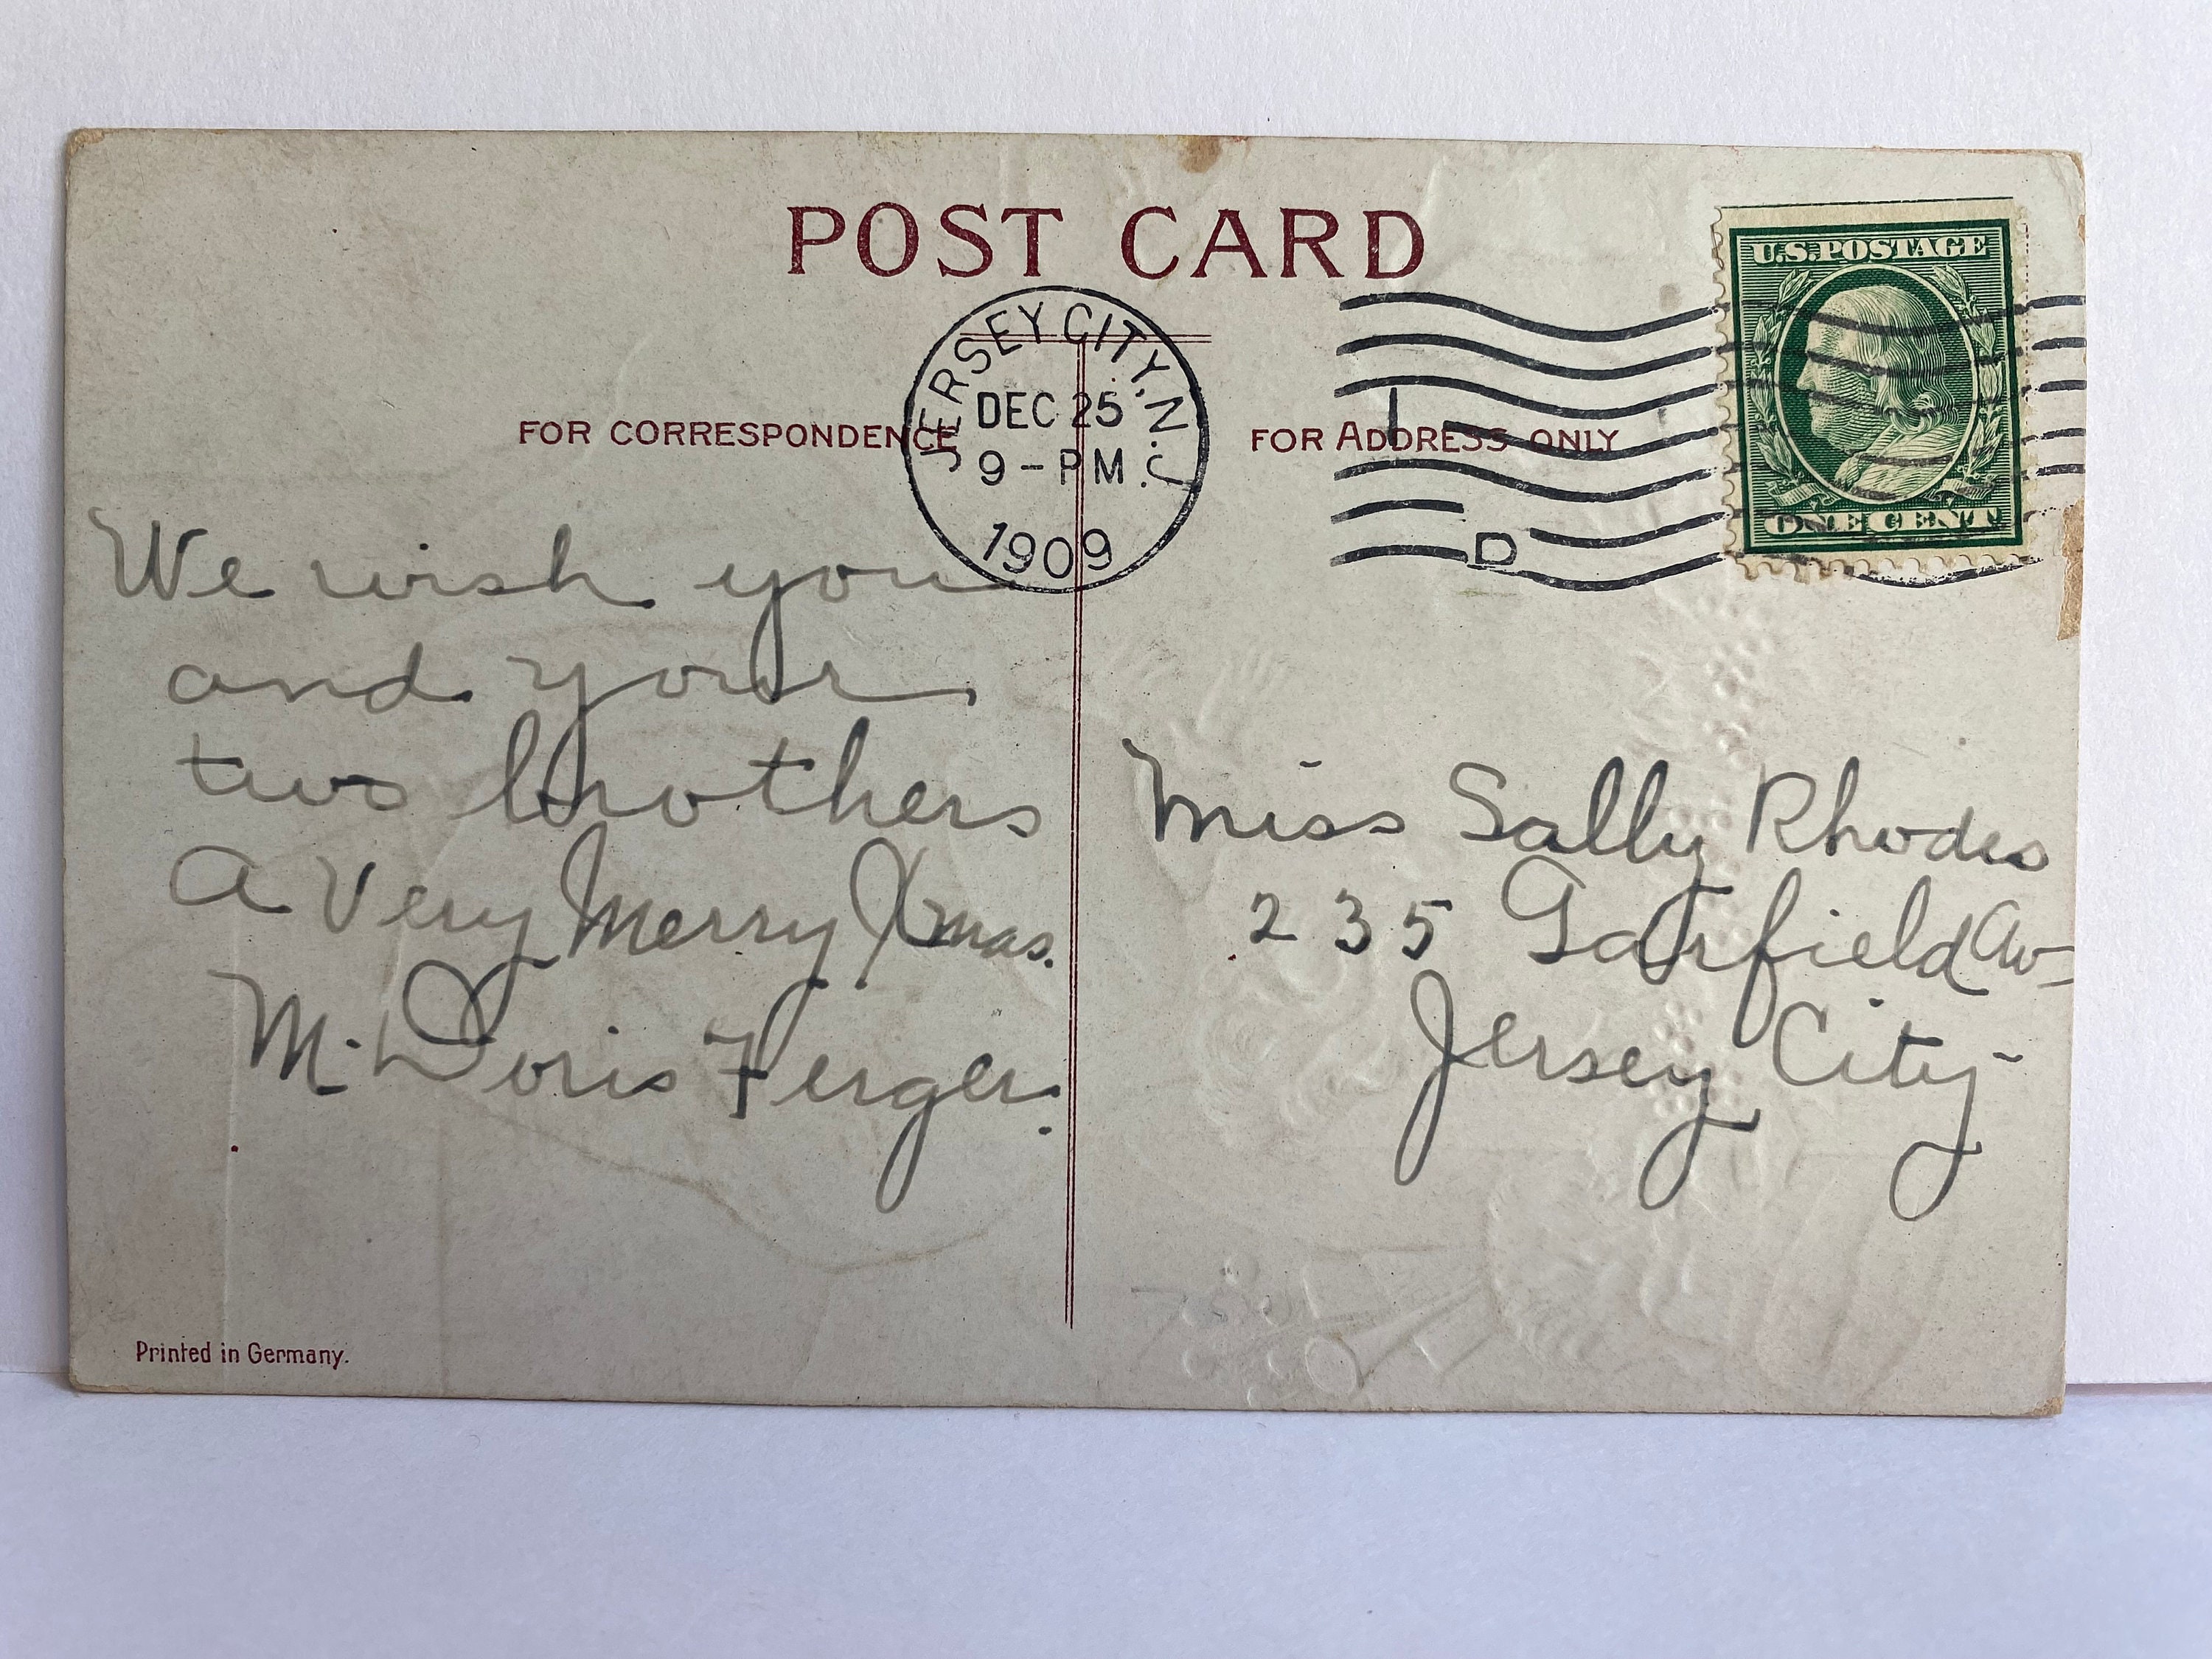 POST CARD
U.S.POSTAGE
ONE CENT
JERSEY CITY, N.J.
DEC 25
9-PM
1909
1
D
FOR CORRESPONDENCE
FOR ADDRESS ONLY
We wish you
and your
two brothers
A Very Merry Xmas.
M. Doris Ferger.
Miss Sally Rhodes
235 Garfield Av-
Jersey City
Printed in Germany.